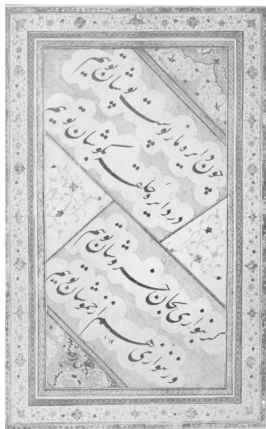 چون دایره ما ز پوست پوشان توییم
در دایره حلقه بگوشان توییم
گر بنوازی بجان خروشان توییم
ور ننوازی هم از خموشان توییم